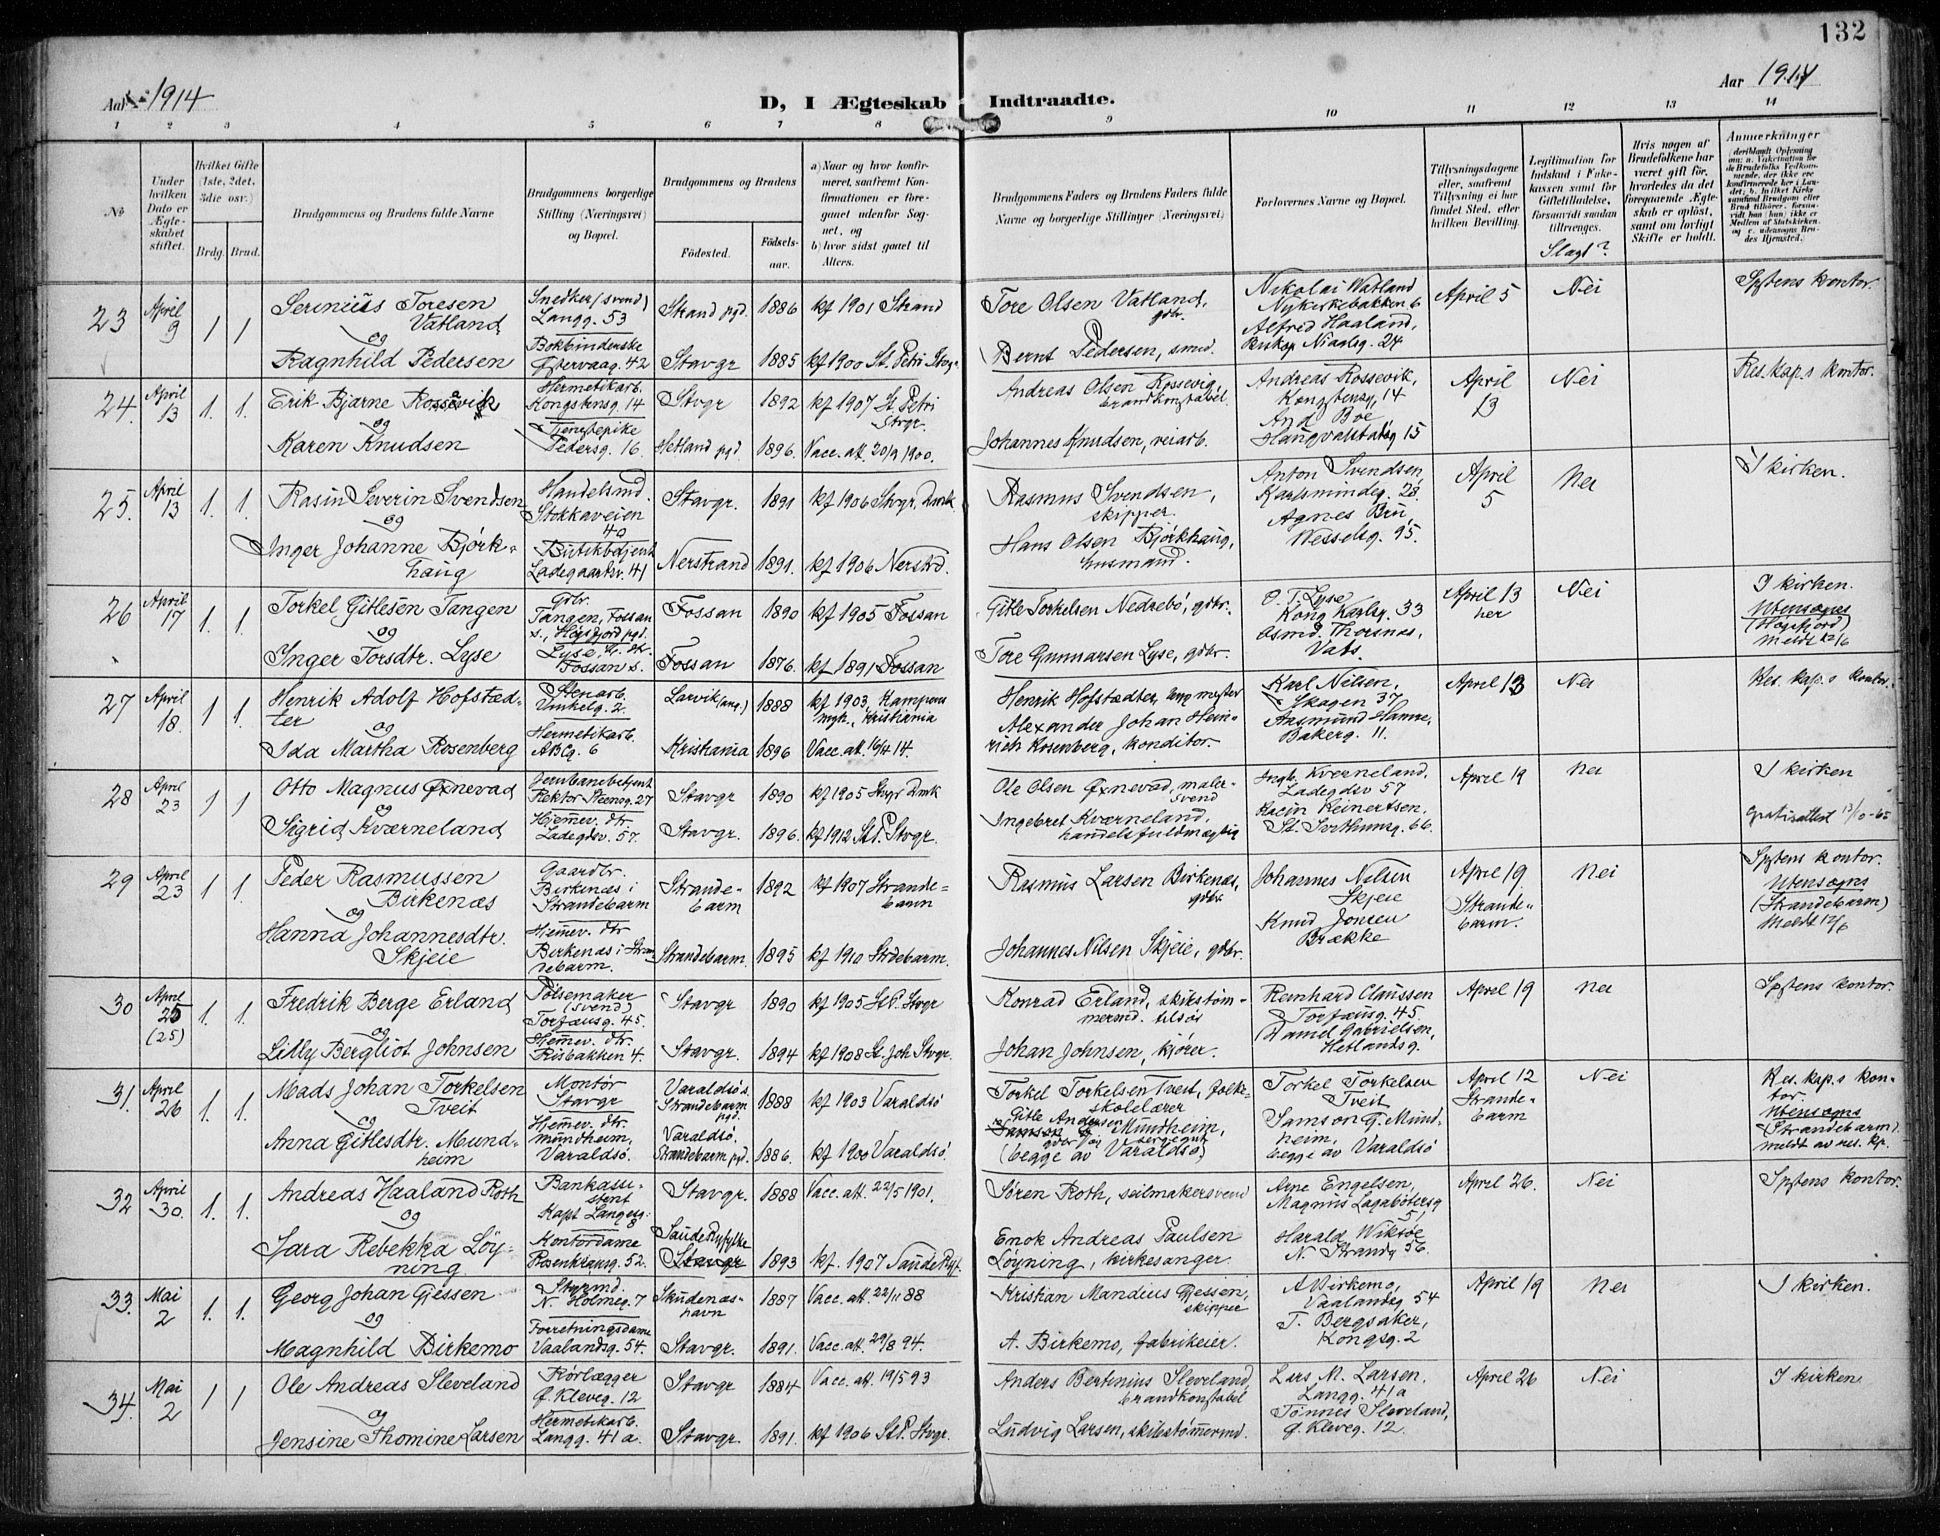 132
Aar 1914
D, I Ægteskab Indtraadte.
Aar 1914
1 2 3 4 5 6 7 8 9 10 11 12 13 14
No
Under hvilken Dato er Ægteskabet stiftet.
Hvilket Gifte (1ste, 2det, 3die osv.)
Brdg. Brud.
Brudgommens og Brudens fulde Navne
Brudgommens borgerlige Stilling (Næringsvei) og Bopæl.
Brudgommens og Brudens
Fødested.
Fødselsaar.
a) Naar og hvor konfirmeret, saafremt Konfirmationen er foregaaet udenfor Sognet, og
b) hvor sidst gaaet til Alters.
Brudgommens Faders og Brudens Faders fulde Navne og borgerlige Stillinger (Næringsvei)
Forlovernes Navne og Bopæl.
Tillysningsdagene eller, saafremt Tillysning ei har fundet Sted, efter hvilken Bevilling.
Legitimation for Indskud i Enkekassen samt for Giftetilladelse, forsaavidt saadan tiltrænges.
Slagt?
Hvis nogen af Brudefolkene har været gift før, hvorledes da det foregaaende Ægteskab er opløst, samt om lovligt Skifte er holdt.
Anmerkninger
23 April 9 1 1
Serinius Toresen Vatland
og
Ragnhild Pedersen
Snedker (svend)
Langg. 53
Bokbinderske
Østervaag. 42
Strand pgd. 1886 kf 1901 Strand
Stavgr 1885 kf 1900 St. Petri Stvgr
Tore Olsen Vatland, gdbr.
Bernt Pedersen, smed.
Nikolai Watland
Nykirkebakken 6
Alfred Haaland,
24
April 5 Nei
Spstens kontor.
24. April 13 1. 1.
Erik Bjarne Rossevik
og
Karen Knudsen
Hermetikarb.
Kongstensg. 14
Tjenestepike
Pedersg. 16.
Stvgr 1892 kf 1907 St. Petri Stvgr.
Hetland pgd. 1896. Vacc. att. 20/9 1900.
Andreas Olsen Rossevig, brandkonstabel.
Johannes Knudsen, veiarb.
Andreas Rossevik,
Kongstensg. 14
And Boe
Haugvaldstadsg 15
April 13 Nei
Res. kap.s kontor.
25. April 13 1. 1.
Rasin Severin Svendsen
og
Inger Johanne Bjørkhaug
Handelsmd.
Stokkaveien 40
Butikbetjent
Ladegaardsv. 41
Stavgr. 1891 kf 1906 Stvgr. Dmk
Nerstrand 1891. kf 1906 Nerstrd.
Rasmus Svendsen, skipper.
Hans Olsen Bjørkhaug, husmand.
Anton Svendsen,
Karlsmindeg. 28.
Agnes Bru
Wesselsg. 95.
April 5 Nei
I kirken.
26 April 17 1. 1.
Torkel Gitlesen Tangen
og
Inger Torsdtr. Lyse
Gdbr.
Tangen, Fossan s., Høgsfjord pgd.
Lyse, g. dtr.
Fossan s.
Fossan 1890 kf 1905 Fossan
Fossan 1876. kf 1891 Fossan
Gitle Torkelsen Nedrebø, gdbr.
Tore Gunnarsen Lyse, gdbr.
O. T. Lyse
Kong Karlsg. 33
Osmd. Thorsnes,
Vats.
April 13 her Nei
I kirken.
Utensogns
(Høgsfjord)
Meldt 12/6
27 April 18. 1 1.
Henrik Adolf Hofstædter
og
Ida Martha Rosenberg
Stenarb.
Vinkelg. 2
Hermetikarb.
ABCg. 6
Larvik (ang.) 1888 kf 1903, Kampens mgh., Kristiania
Kristiania 1896 Vacc. att. 16/4 14.
Henrik Hofstædter, mester
Alexander Johan Heinrich Rosenberg, konditor.
Karl Nilsen,
Skagen 37
Aasmund Hanne,
Bakerg. 11.
April 13 Nei
Res. kap.s kontor.
28 April 23 1 1
Otto Magnus Øxnevad
og
Sigrid Kværneland
Jernbanebetjent
Rektor Steensg. 27
Hjemmev. dtr
Ladegdsv. 57.
Stavgr 1890 kf 1905 Stvgr Dmk
Stavgr. 1896. kf 1912 St. P. Stvgr.
Ole Olsen Øxnevad, malersvend
Ingebret Kværneland, handelsfuldmægtig
Ingb. Kverneland,
Ladegdsv 57
Racin Reinertsen,
St. Svithunsg. 66.
April 19 Nei
I kirken
Gratisattest 13/10-65
29 April 23 1 1.
Peder Rasmussen Birkenæs
og
Hanna Johannesdtr. Skjeie
Gaardbr.
Birkenæs i Strandebarm
Hjemmev. dtr
Birkenæs i Strandebarm.
Strandebarm 1892 kf 1907 Strandebarm
Strandebarm. 1895 kf 1910 Strdebarm.
Rasmus Larsen Birkenæs, gdbr.
Johannes Nilsen Skjeie, gdbr.
Johannes Nilsen Skjeie
Knud Jonsen Brække
April 19 Strandebarm. Nei
Spstens kontor.
Utensogns
(Strandebarm)
Meldt 12/6
30 April 25 (25) 1. 1.
Fredrik Berge Erland
og
Lilly Bergliot Johnsen
Pølsemaker (svend)
Torfæusg. 45.
Hjemmev. dtr.
Risbakken 4.
Stavgr 1890 kf 1905 St P. Stvgr
Stavgr. 1894 kf 1908 St. Joh Stvgr.
Konrad Erland, skibstømmermd. tilsøs
Johan Johnsen, kjører.
Reinhard Claussen
Torfæusg. 45
Daniel Gabrielsen,
Hetlandsg.
April 19 Nei
Spstens kontor.
31. April 26 1. 1.
Mads Johan Torkelsen Tveit
og
Anna Gitlesdtr. Mundheim
Montør
Stavgr
Hjemmev. dtr.
Mundheim,
Varaldsø.
Varaldsø s. Strandebarm pgd. 1888 kf 1903 Varaldsø
Varaldsø. Strandebarm pgd. 1886. kf 1900 Varaldsø.
Torkel Torkelsen Tveit, folkeskolelærer
Gitle Andersen Mundheim, gdbr og sergeant
(begge av Varaldsø)
Torkel Torkelsen Tveit
Samson G. Mundheim,
begge av Varaldsø
April 12 Strandebarm Nei
Res. kap.s kontor.
Utensogns
(Strandebarm)
meldt av res. kp.
32 April 30. 1. 1.
Andreas Haaland Roth
og
Sara Rebekka Løyning
Bankassistent
Kapt Langesg. 8
Kontordame
Rosenkransg. 52.
Stavgr. 1888 Vacc. att. 22/5 1901.
Saude Ryfylke Stavgr 1893 kf. 1907 Saude Ryf.
Søren Roth, seilmakersvend
Enok Andreas Paulsen Løyning, kirkesanger.
Arne Engelsen,
Magnus Lagabøtersg 5,
Harald Wiksøe
N. Strandg 56.
April 26. Nei
Spstens kontor.
33. Mai 2 1. 1.
Georg Johan Gjessen
og
Magnhild Birkemo
Styrmd.
N. Holmeg. 7
Forretningsdame
Vaalandsg. 54.
Skudeneshavn 1887 Vacc. att. 22/11 88
Stavgr. 1891. Vacc. att. 29/8 94.
Kristian Mandius Gjessen, skipper
A. Birkemo, fabrikeier.
A Birkemo,
Vaalandsg 54
T. Bergsaker,
Kongsg. 2
April 19 Nei
I kirken.
34. Mai 2 1 1
Ole Andreas Sleveland
og
Jensine Thomine Larsen
Rørlægger
Ø. Kleveg. 12
Hermetikarb.
Langg. 41 a.
Stavgr 1884 Vacc. att. 19/5 93
Stavgr 1891. kf 1906 St P. Stvgr.
Anders Bertinius Sleveland, brandkonstabel
Ludvig Larsen, skibstømmermd.
Lars M. Larsen,
Langg. 41a
Tønnes Sleveland,
Ø. Kleveg. 12.
April 26 Nei
I kirken